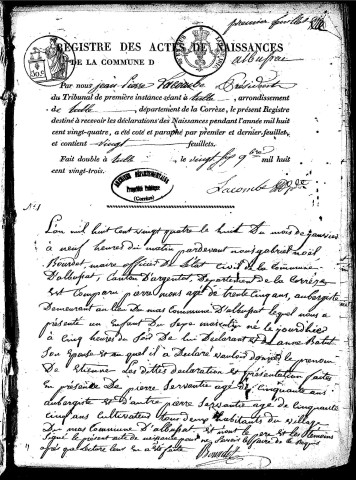 premier feuillet
REGISTRE DES ACTES DE NAISSANCES
DE LA COMMUNE D albussac
Par nous jean Pierre Lacombe Président
du Tribunal de première instance séant à tulle, arrondissement
de tulle, département de la Corrèze, le présent Registre
destiné à recevoir les déclarations des Naissances pendant l'année mil huit
cent vingt-quatre, a été coté et paraphé par premier et dernier feuillet,
et contient vingt feuillets.
Fait double à tulle le vingt 9bre mil huit
cent vingt-trois.
ARCHIVES DÉPARTEMENTALES
Propriété Publique
(Corrèze)
Lacombe
N° 1
L'on mil huit cent vingt quatre le huit Du mois de janvier
à neuf heures du matin pardevant nous gabriel noël
Bourdet, maire officier de l'état Civil de la Commune
D'albussat, Canton D'argentat, Département de la Corrèze
Est Comparu pierre mons agé de trente cinq ans, aubergiste
Demeurant au lieu Du mas Commune D'albussat lequel nous a
présenté un Enfant Du Sexe masculin né le jourdhier
à Cinq heures du Soir De lui Declarant et De anne
Son Epouse et au quel il a Declaré vouloir donner le prenom
De Etienne Les dittes declaration et présentation faites
En présence De pierre Servantie agé de Cinquante ans
aubergiste et D'autre pierre Servantie agé de Cinquante
Cinq ans Cultivateur tous deux habitants du village
Du mas Commune D'albussat et ont le pere et les temoins
Signé le present acte de naissance pour ne Savoir le faire de ce requis
après que lecture leur en a été faite
Bourdet